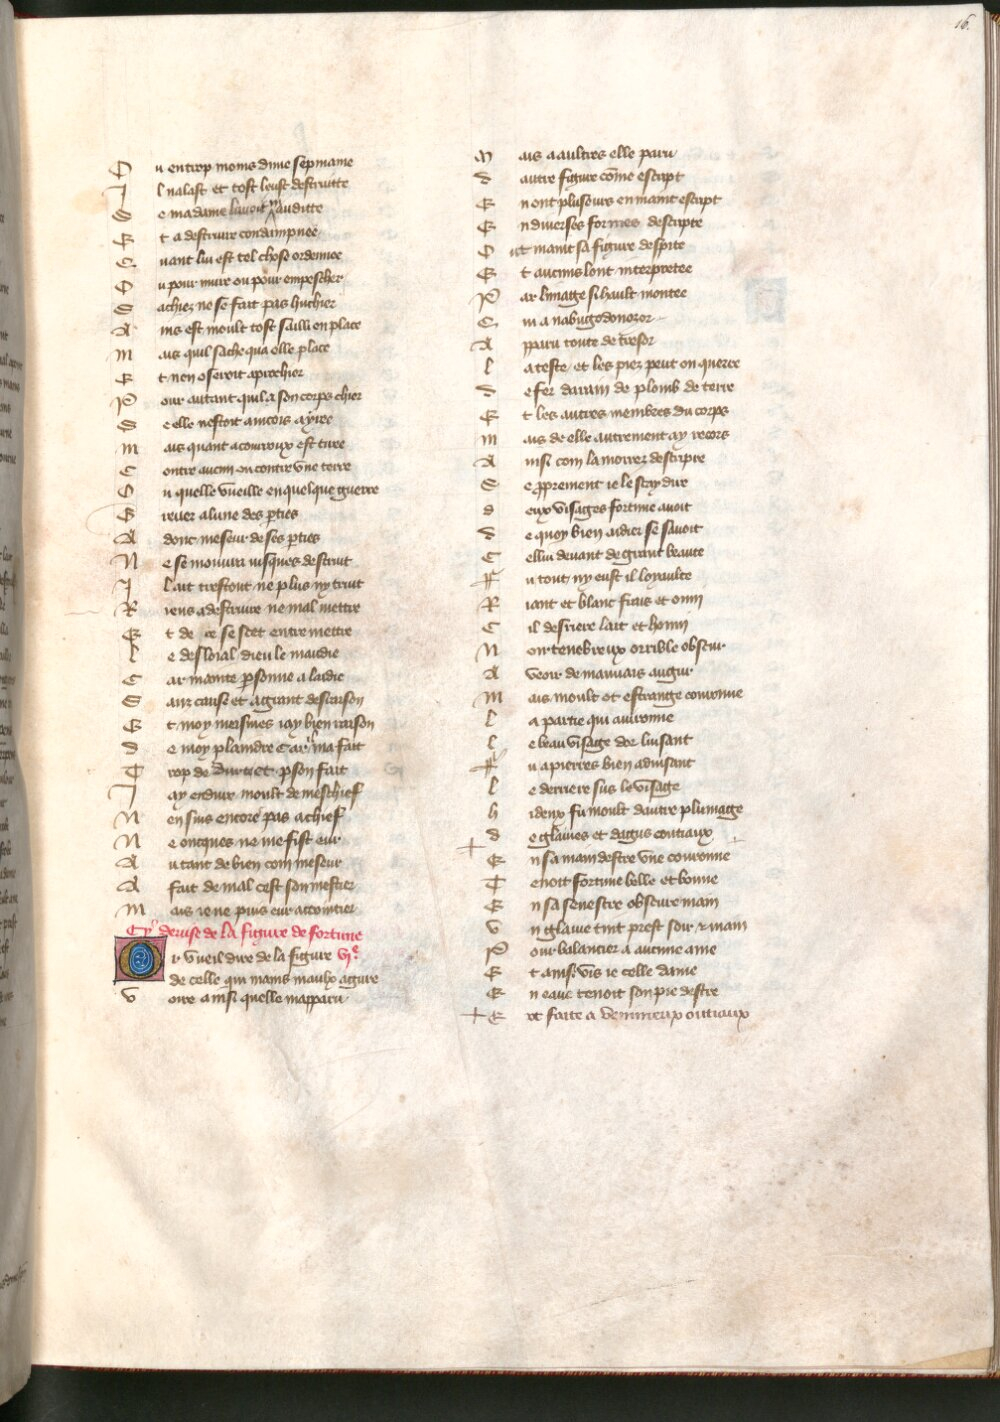 16.
O u entrep moins dune sepmaine
I l nalast et tost leust destruitte
S e madame lavoit mauditte
E t a destruire condampnee
Q uant lui est tel chose ordenee
O u pour muire ou pour empescher
S achiez ne se fait pas huchier
A ins est moult tost sailli en place
M ais quil sache qua elle place
E t nen oseroit aprochier
P our autant quil a son corps chier
S e elle nestoit aincois ayree
M ais quant a couroux est tiree
C ontre aucun ou contre vne terre
O u quelle vueille en quelque guerre
G reuer a lune des pties
A donc meseur de ses pties
N e se mouura iusques destruit
I l ait trestout ne plus ny truit
R iens a destruire ne mal mettre
E t de ce se scet entremettre
L e desloial dieu le maudie
C ar mainte psonne a laidie
S anz cause et a grant desraison
E t moy meismes iay bien raison
D e moy plaindre car il ma fait
T rop de durtet p son fait
I ay endure moult de meschief
N en suis encore pas a chief
N e oncques ne me fist eur
A utant de bien com meseur
A fait de mal cest son mestier
M ais ie ne puis eur acointier
Cy deuise de la figure de fortune
O r vueil dire de la figure vje
de celle qui mains maulx agure
V oire ainsi quelle mapparu
M ais a aultres elle paru
D autre figure come escript
E n ont pluseurs en maint escript
E n diuerses formes descripte
O nt maint sa figure despite
E t aucuns lont interpretee
P ar limage si hault montee
Q ui a nabugodonozor
A pparu toute de tresor
L a teste et les piez peut on querre
D e fer darain de plomb de terre
E t les autres membres du corps
M ais de elle autrement ay recors
A insi com la morrez descripre
S e pprement ie le scay dire
D eux visages fortune auoit
D e quoy bien aidier se sauoit
C ellui deuant de grant beaute
F u tout ny eust il loyaulte
R iant et blanc frais et onni
C il derriere lait et honni
N oir tenebreux orrible obscur
A veoir de mauuais augur
M ais moult ot estrange couronne
L a partie qui auironne
L e beau visage dor luisant
F u a pierres bien aduisant
L e derriere sus le visage
H ideux fu moult dautre plumage
D e glaiues et dagus coutiaux
E n sa main destre vne couronne
T enoit fortune belle et bonne
E n sa senestre obscure main
V n glaiue tint prest soir et main
P our balancier a aucune ame
E t ainsi vis ie celle dame
E n eaue tenoit son pie destre
E ot faite a venimeux outiaux